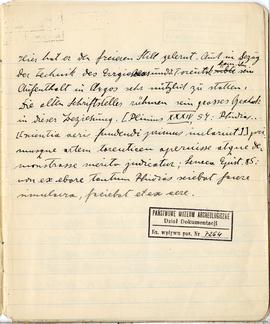 Hier hat er den freieren Stil gelernt. Auch in Bezug
der Technik des Erzgiessens und Toreutik sein
Aufenthalt in Argos sehr nützlich zu statten.
Die alten Schriftsteller rühmen sein grosses Geschick
in dieser Beziehung. [Plinius XXXIV 54. Phidias..
primusque artem toreuticen aperuisse atque de-
monstrasse merito judicatur; Seneca Epist. 85:
non ex ebore tantum Phidias sciebat facere
simulacra, faciebat et ex aere.
PAŃSTWOWE MUZEUM ARCHEOLOGICZNE
Dział Dokumentacji
Ks. wpływu poz. Nr 7264